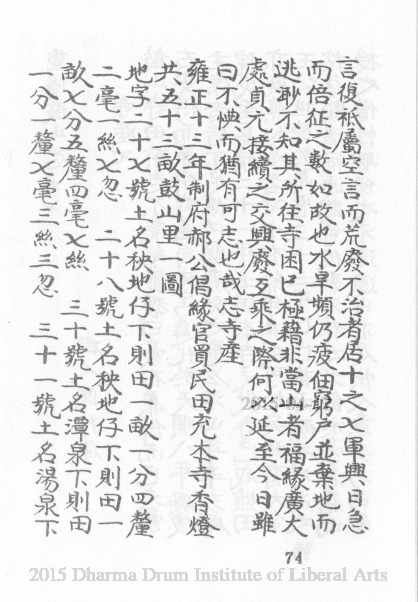 言復祇屬空言而荒廢不治者居十之七軍興日急
而倍征之數如故也水旱頻仍疲佃窮戶並棄地而
逃耿不知其所住寺困已極藉非當山者福緣廣大
處貞元接續之交興廢互乘之際何以延至今日雖
曰不腆而猶有可志也哉志寺產
雍正十二年制府郝公倡緣官買民田充本寺香燈
共五十三畝鼓山里一圖
地字二十七號土名秧地仔下則田一畝一分四釐
二毫一絲七忽 二十八號土名秧地仔下則田一
畝七分五釐四毫七絲 三十號土名潭泉下則田
一分一釐七毫三絲三忽 三十一號土名湯泉下
74
2015 Dharma Drum Institute of Liberal Arts